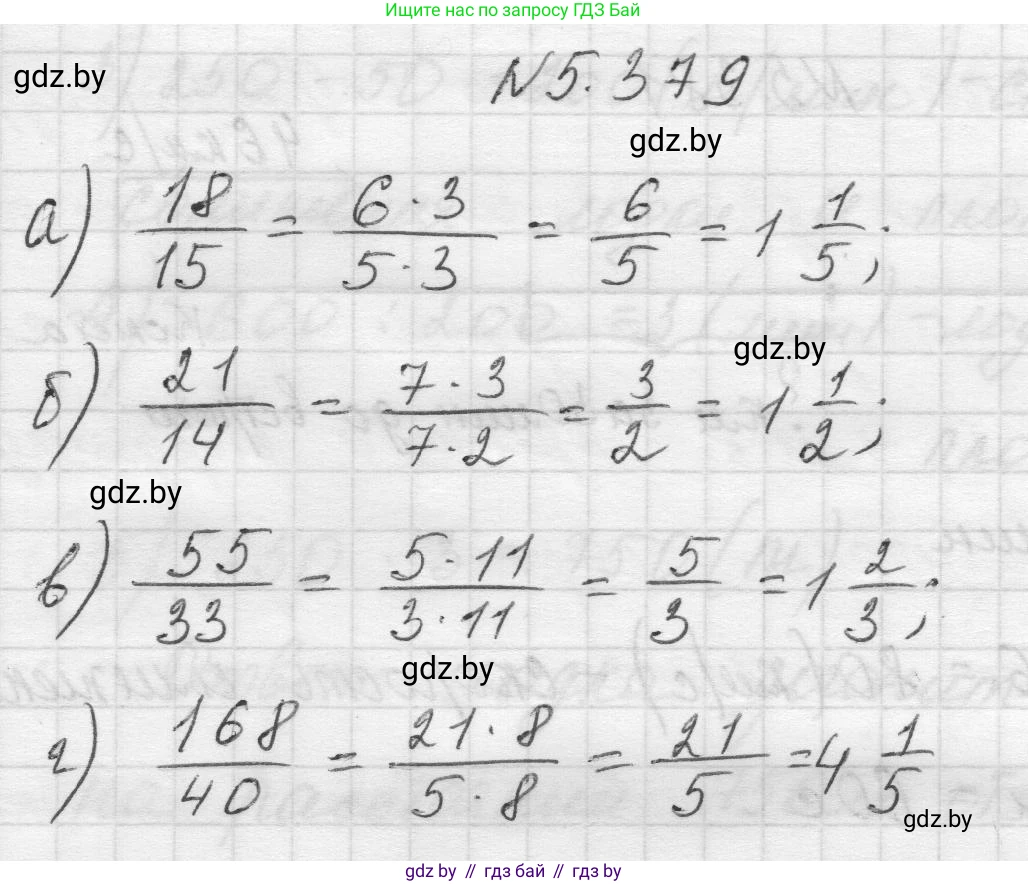 Ищите нас по запросу ГДЗ Бай
gdz.by
N5.379
gdz.by
а) 18/15 = 6·3/5·3 = 6/5 = 1 1/5;
gdz.by
б) 21/14 = 7·3/7·2 = 3/2 = 1 1/2;
gdz.by
в) 55/33 = 5·11/3·11 = 5/3 = 1 2/3;
gdz.by
г) 168/40 = 21·8/5·8 = 21/5 = 4 1/5
gdz.by
gdz.by // гдз бай // гдз by